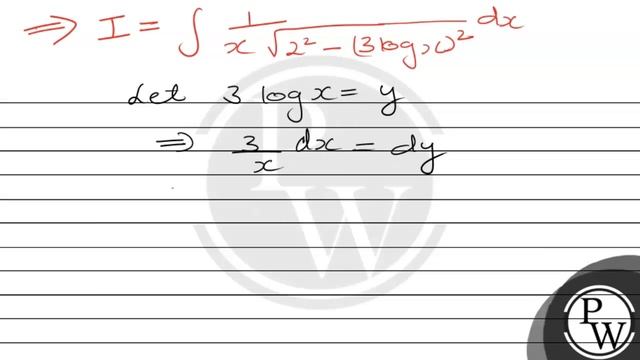 ⇒ I = ∫ 1 / x √2² − (3 log x)² dx
Let 3 log x = y
⇒ 3/x dx = dy
PW
PW